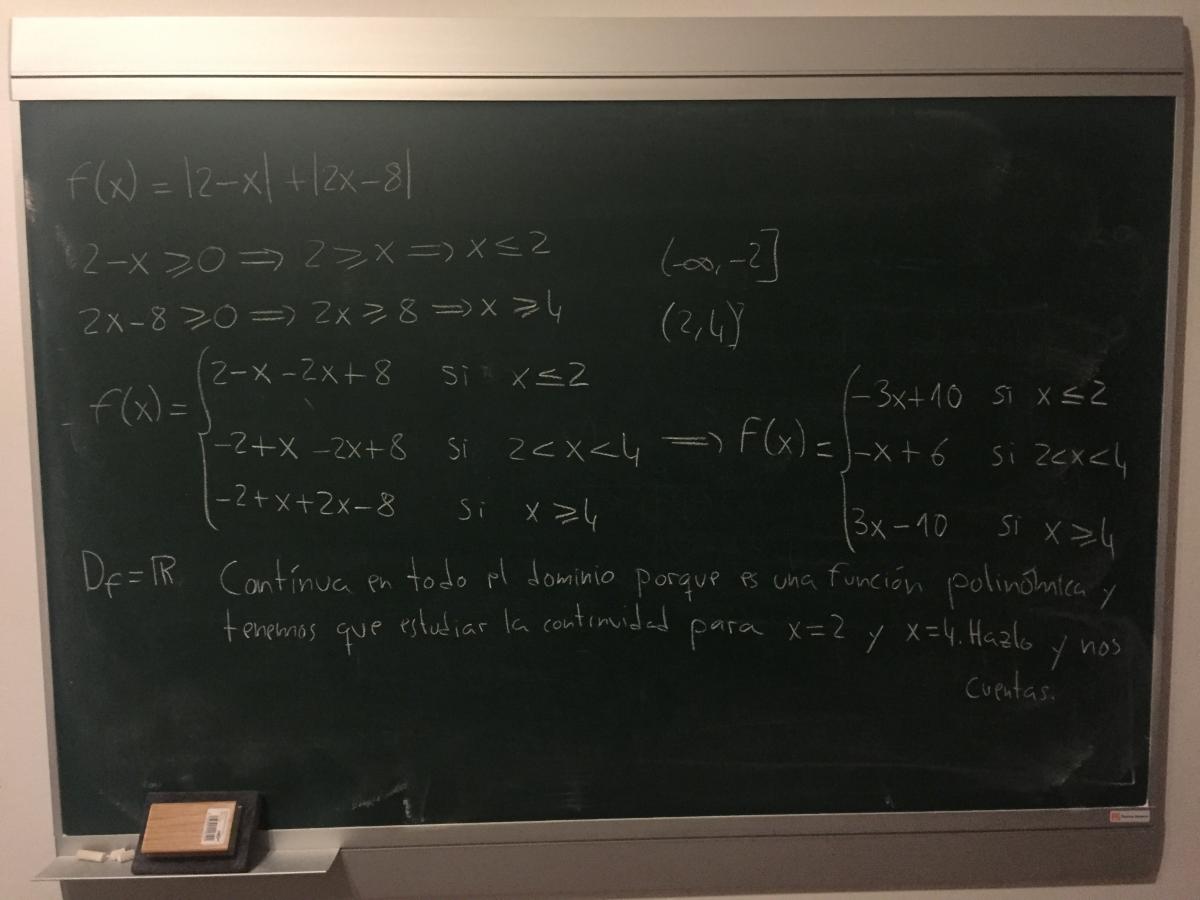 f(x) = |2-x| + |2x-8|
2-x ≥ 0 ⟹ 2 ≥ x ⟹ x ≤ 2 (-∞, -2]
2x-8 ≥ 0 ⟹ 2x ≥ 8 ⟹ x ≥ 4 (2,4]
f(x) = { 2-x -2x+8 si x ≤ 2
-2+x -2x+8 si 2<x<4
-2+x+2x-8 si x ≥ 4
⟹ f(x) = { -3x+10 si x ≤ 2
-x+6 si 2<x<4
3x-10 si x ≥ 4
Df = ℝ Contínua en todo el dominio porque es una función polinómica y
tenemos que estudiar la continuidad para x=2 y x=4. Hazlo y nos
cuentas.